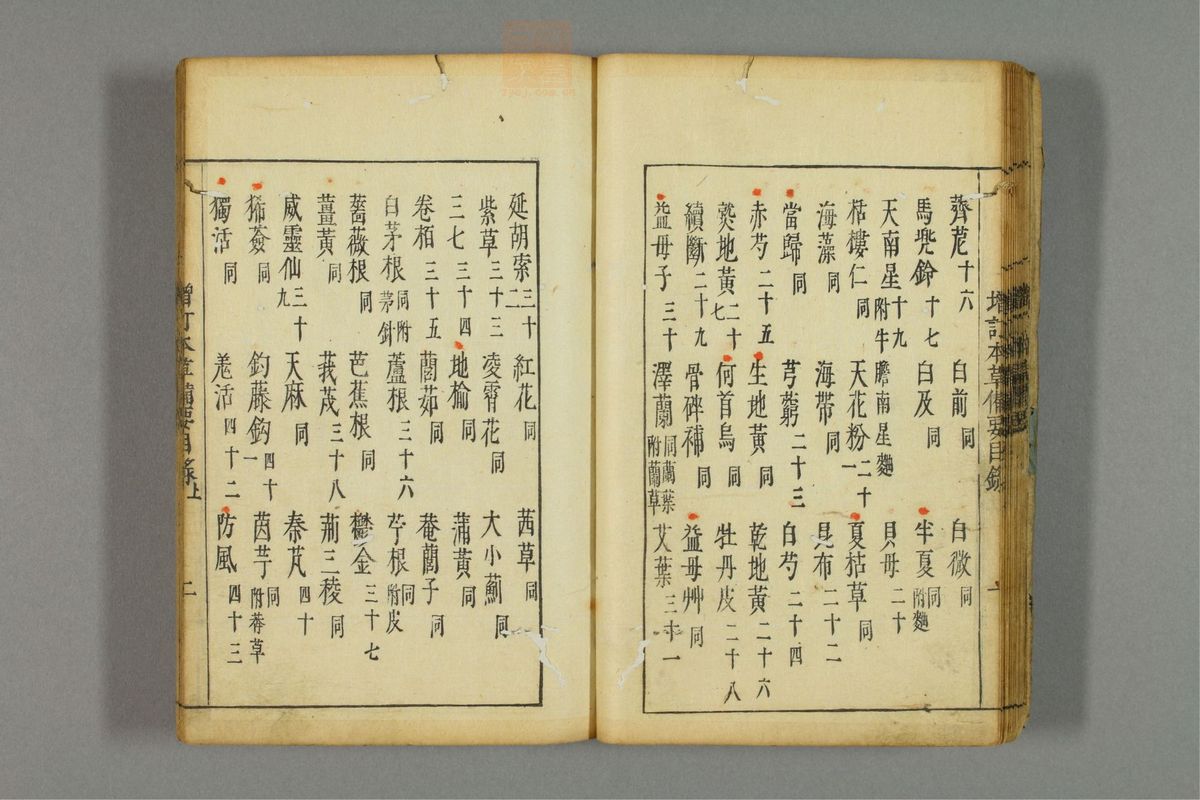 薺苨十六 白前同 白微同
馬兜鈴十七 白及同 半夏同附麯
天南星十九附牛膽南星麯 貝母二十
栝樓仁同 天花粉二十一 夏枯草同
海藻同 海帶同 昆布二十二
當歸同 芎藭二十三 白芍二十四
赤芍二十五 生地黃同 乾地黃二十六
熟地黃二十七 何首烏同 牡丹皮二十八
續斷二十九 骨碎補同 益母艸同
益母子三十 澤蘭同蘭葉附蘭草 艾葉三十一
延胡索三十二 紅花同 茜草同
紫草三十三 凌霄花同 大小薊同
三七三十四 地榆同 蒲黃同
卷栢三十五 藘茹同 菴藘子同
白茅根同附茅針 蘆根三十六 苧根同附皮
薔薇根同 芭蕉根同 鬱金三十七
薑黃同 莪茂三十八 荊三稜同
威靈仙三十九 天麻同 秦艽四十
豨薟同 鈎藤鈎四十一 茵芋同附莽草
獨活同 羗活四十二 防風四十三
增訂本草備要目錄
增訂本草備要目錄上 二